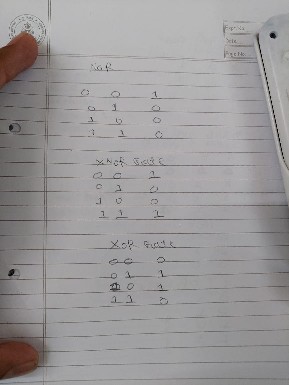 NOR
0 0 1
0 1 0
1 0 0
1 1 0
XNOR Gate
0 0 1
0 1 0
1 0 0
1 1 1
XOR Gate
0 0 0
0 1 1
1 0 1
1 1 0